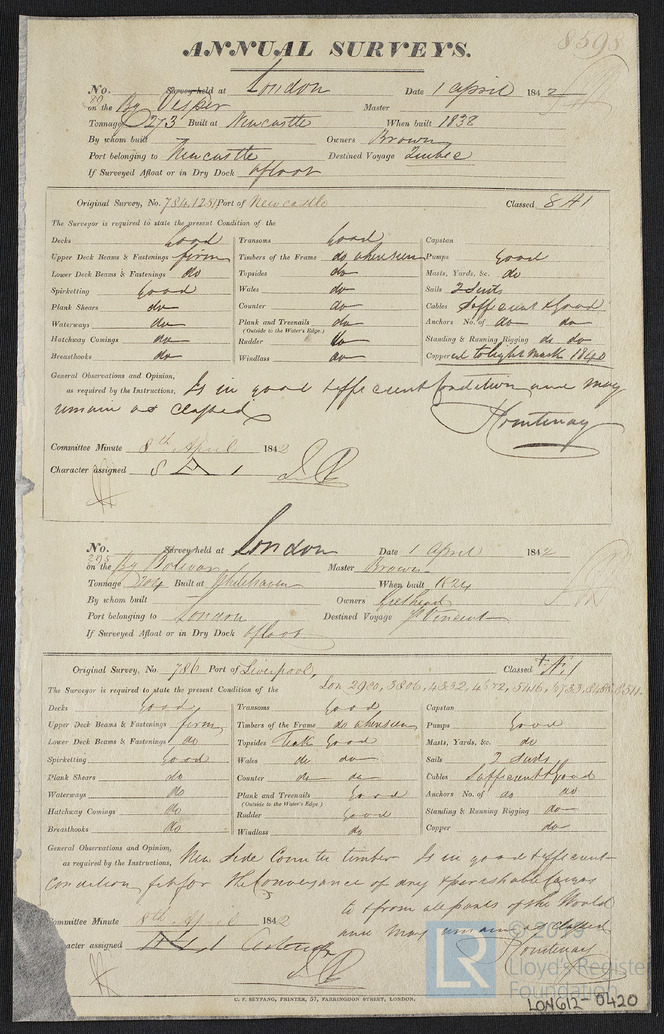 8598
ANNUAL SURVEYS.
No. 80 Survey held at London Date 1 April 1842
on the Bg Vesper Master
Tonnage 273 Built at Newcastle When built 1838
By whom built Owners Brown
Port belonging to Newcastle Destined Voyage
If Surveyed Afloat or in Dry Dock afloat
Original Survey, No. 784,1251 Port of Newcastle Classed 8 A1
The Surveyor is required to state the present Condition of the
Decks Good Transoms Good Capstan
Upper Deck Beams & Fastenings firm Timbers of the Frame do when seen Pumps Good
Lower Deck Beams & Fastenings do Topsides do Masts, Yards, &c. do
Spirketting Good Wales do Sails 2 Suits
Plank Shears do Counter do Cables Sufficient & Good
Waterways do Plank and Treenails do Anchors No. of do do
(Outside to the Water's Edge.)
Hatchway Comings do Rudder do Standing & Running Rigging do do
Breasthooks do Windlass do Coppered to light Mark 1840
General Observations and Opinion,
as required by the Instructions, Is in good & efficient Condition and may
remain as classed
Courtenay
Committee Minute 8th April 1842
Character assigned 8 A 1
No. 295 Survey held at London Date 1 April 1842
on the Bg Bolivar Master Brown
Tonnage 204 Built at Whitehaven When built 1824
By whom built Owners
Port belonging to London Destined Voyage St Vincent
If Surveyed Afloat or in Dry Dock afloat
Original Survey, No. 786 Port of Liverpool, Classed
Lon 2980, 3806, 4332, 4572, 5416, 6733, 8488, 8511.
The Surveyor is required to state the present Condition of the
Decks Good Transoms Good Capstan
Upper Deck Beams & Fastenings firm Timbers of the Frame do when seen Pumps Good
Lower Deck Beams & Fastenings do Topsides Teak Good Masts, Yards, &c. do
Spirketting Good Wales do do Sails 2 Suits
Plank Shears do Counter do do Cables Sufficient & Good
Waterways do Plank and Treenails Good Anchors No. of do do
(Outside to the Water's Edge.)
Hatchway Comings do Rudder Good Standing & Running Rigging do
Breasthooks do Windlass do Copper do
General Observations and Opinion,
as required by the Instructions, New Side Counter timber Is in good & efficient
condition fit for the Conveyance of dry & perishable Cargos
to & from all parts of the World
Committee Minute 8th April 1842
and may remain as classed
Character assigned
Courtenay
C. F. SEYFANG, PRINTER, 57, FARRINGDON STREET, LONDON.
LR
© 2019
Lloyd's Register
Foundation
LON612-0420